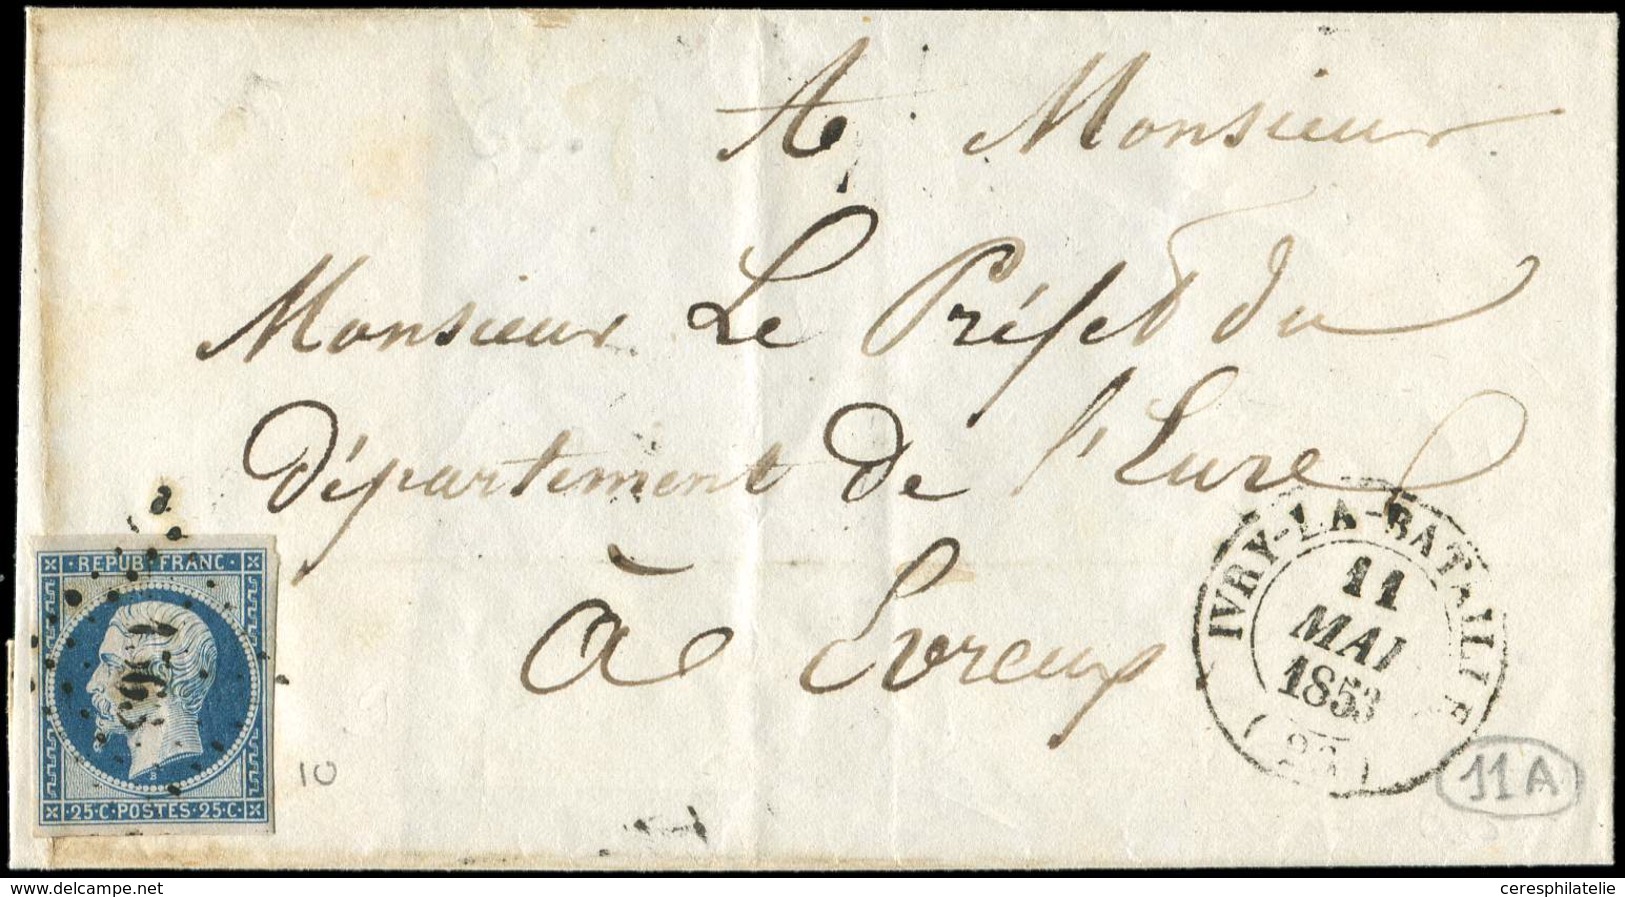 A Monsieur
Monsieur Le Préfet du
Département de l'Eure
à Evreux
REPUB FRANC
25·C·POSTES·25·C·
B
10
IVRY-LA-BATAILLE
11
MAI
1853
11A
www.delcampe.net
ceresphilatelie